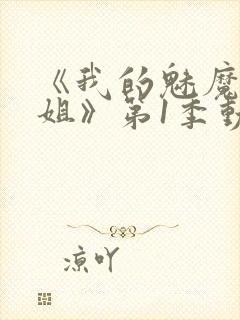 《我的魅魔
姐》第1季動
凉吖